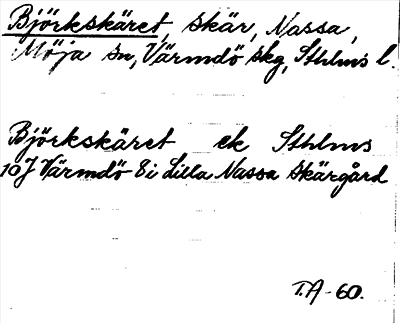 Björkskäret, skär, Nassa,
Möja sn, Värmdö skg, Sthlms l.
Björkskäret ek Sthlms
10J Värmdö 8i Lilla Nassa Skärgård
T.A-60.